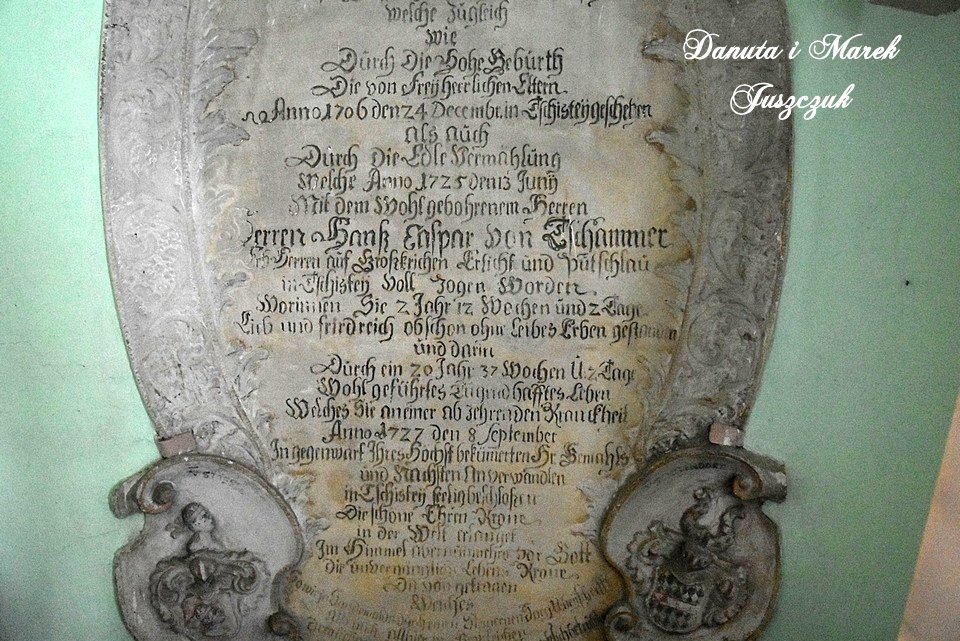 Danuta i Marek
Juszczuk
welche Zugleich
wie
Durch Die Hohe Gebürth
Die von Freÿherrlichen Eltern
Anno 1706 den 24 Decembr. in Tschisteÿ geschehen
als auch
Durch die Edle Vermählung
Welche Anno 1725 den 13 Junÿ
Mit dem Wohlgebohrenem Herren
Herren Hanß Caspar von Tschammer
Erb Herren auf Großkrichen Erlicht und Pütschlau
in Tschisteÿ Voll Zogen Worden
Worinnen Sie 2 Jahr 12 Wochen und 2 Tage
Lieb und friedreich obschon ohne Leibes Erben gestanden
und darin
Durch ein 20 Jahr 37 Wochen U. 2 Tage
Wohl geführtes Tugendhafftes Leben
Welches Sie an einer ab zehrenden Kranckheit
Anno 1727 den 8 September
In gegenwart Ihres Höchst bekümerten Hr. Gemahls
und Nächsten Anverwandten
in Tschisteÿ seelig beschlossen
Die schöne Ehren Krone
in der Welt erlanget
Im Himmel aber nunmehro vor Gott
die unvergängliche Lebens Krone
Welches